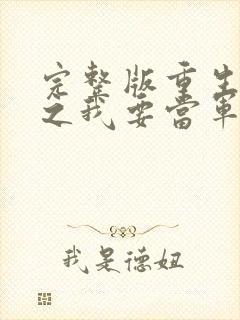 完整版重生
之我要當軍
我是德姐